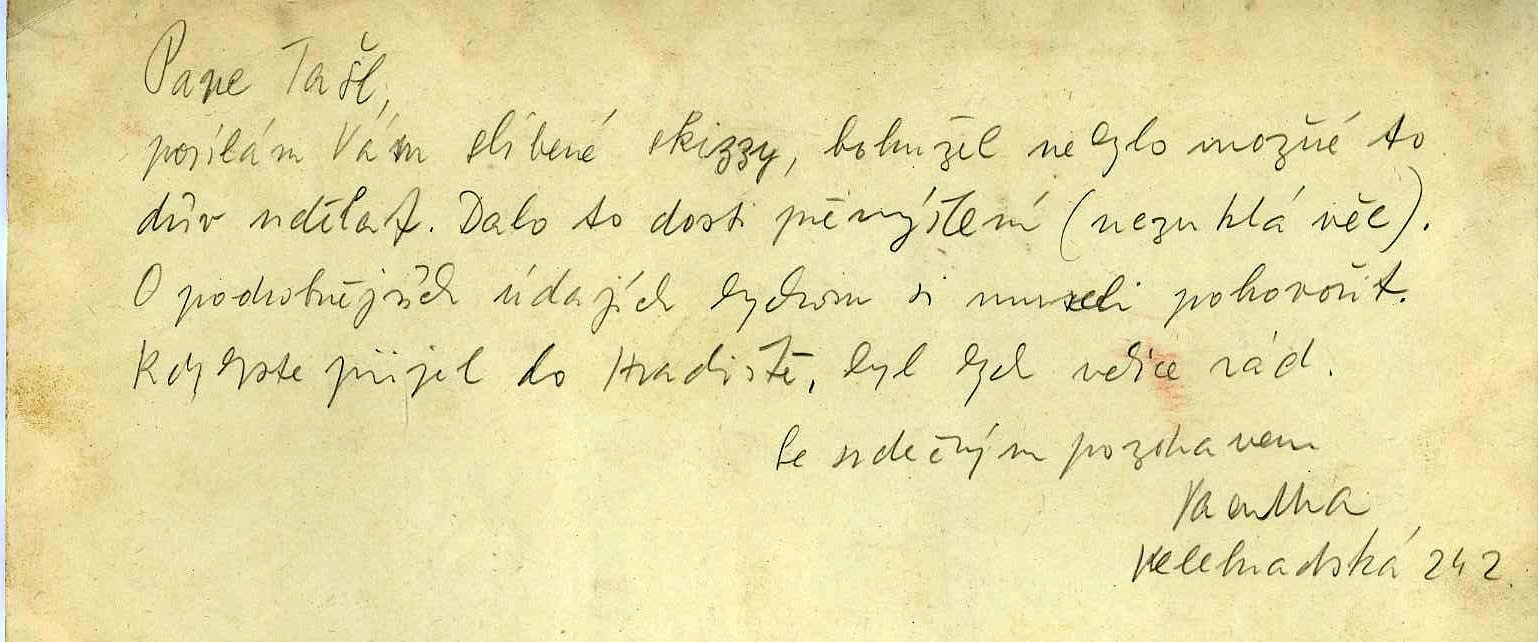 Pane Tašl,
posílám Vám slíbené skizzy, bohužel nebylo možné to
dřív udělat. Dalo to dosti přemýšlení (nezvklá věc).
O podrobnějších údajích bychom si museli pohovořit.
Kdybyste přijel do Hradiště, byl bych velice rád.
Se srdečným pozdravem
Velehradská 242.